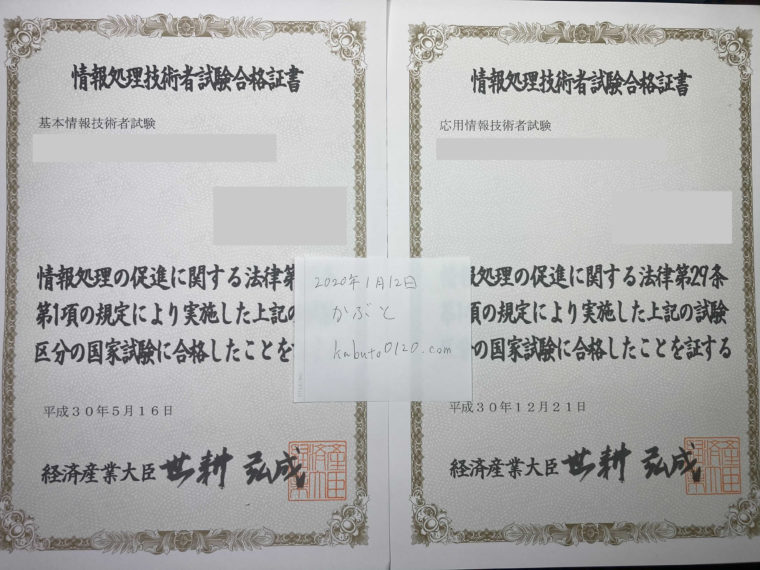 情報処理技術者試験合格証書
基本情報技術者試験
情報処理の促進に関する法律第
第1項の規定により実施した上記の
区分の国家試験に合格したことを
平成30年5月16日
経済産業大臣 世耕 弘成
2020年1月12日
かぶと
kabuto0120.com
情報処理技術者試験合格証書
応用情報技術者試験
処理の促進に関する法律第29条
項の規定により実施した上記の試験
の国家試験に合格したことを証する
平成30年12月21日
経済産業大臣 世耕 弘成